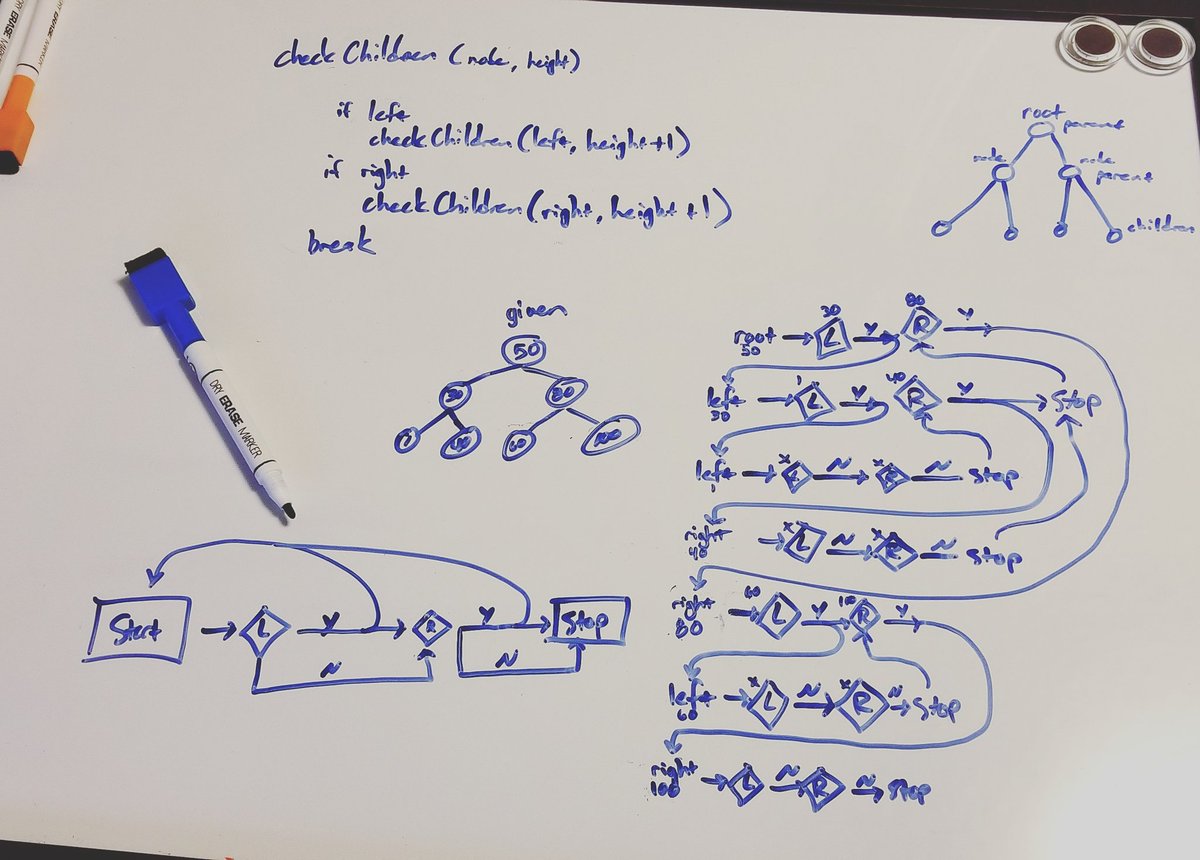 check Children (node, height)
if left
check Children (left, height+1)
if right
check Children (right, height+1)
break
root
parent
node
node
parent
children
given
50
30
80
1
40
60
100
DRY ERASE MARKER
Start
L
Y
R
Y
Stop
N
N
30
80
root → L Y R Y
50
1
40
left → L Y R Y → Stop
30
x
x
left → L N R N Stop
1
x
x
right → L N R N Stop
40
60
100
right → L Y R Y
80
x
x
left → L N R N → Stop
60
right → L N R N Stop
100